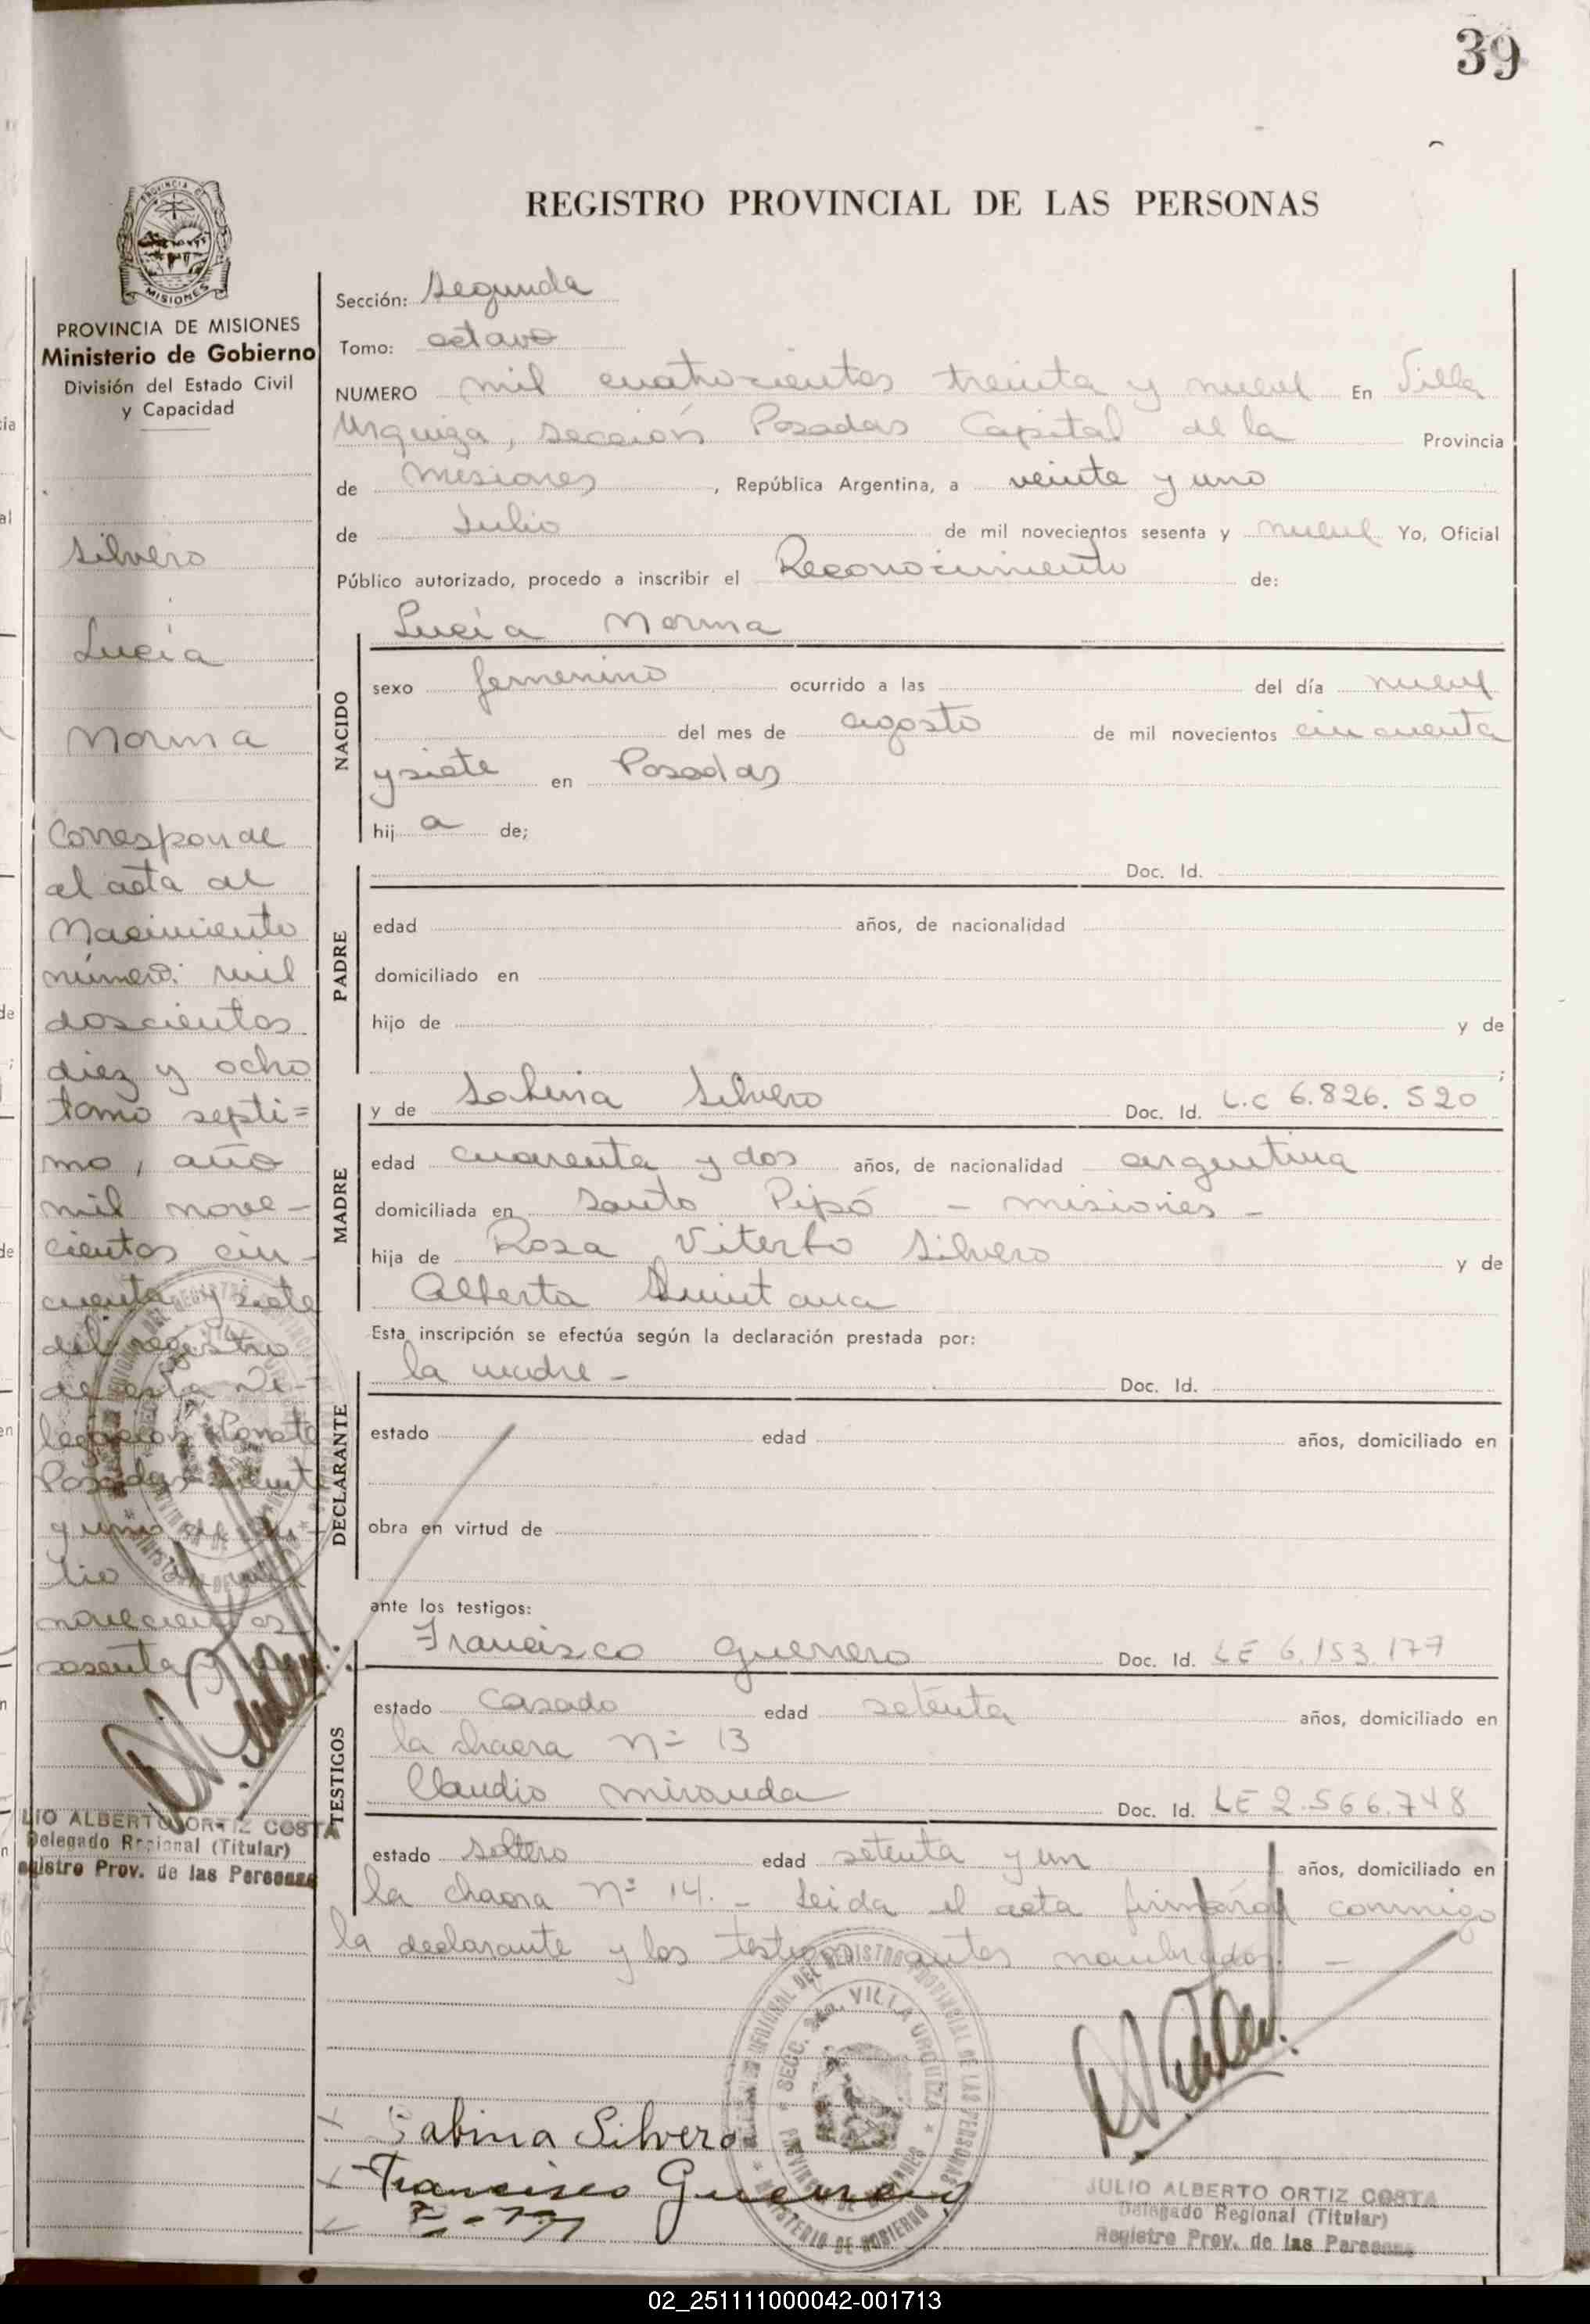 39
REGISTRO PROVINCIAL DE LAS PERSONAS
PROVINCIA DE MISIONES
Ministerio de Gobierno
División del Estado Civil
y Capacidad
Silvero
Lucía
Norma
Corresponde
al acta de
Nacimiento
número: mil
doscientos
diez y ocho
tomo septi=
mo, año
mil nove-
cientos cin-
cuenta y siete
del registro
de esta De-
legación
Posadas
y uno de Ju-
lio
novecientos
sesenta
LIO ALBERTO ORTIZ COSTA
Delegado Regional (Titular)
egistro Prov. de las Personas
Sección: Segunda
Tomo: octavo
NUMERO mil cuatrocientos treinta y nueve En Villa
Urquiza, sección Posadas Capital de la Provincia
de Misiones, República Argentina, a veinte y uno
de Julio de mil novecientos sesenta y nueve Yo, Oficial
Público autorizado, procedo a inscribir el Reconocimiento de:
NACIDO
Lucía Norma
sexo femenino ocurrido a las del día nueve
del mes de agosto de mil novecientos cincuenta
y siete en Posadas
hij a de;
PADRE
Doc. Id.
edad años, de nacionalidad
domiciliado en
hijo de y de
;
MADRE
y de Sabina Silvero Doc. Id. L.C 6.826.520
edad cuarenta y dos años, de nacionalidad argentina
domiciliada en Santo Pipó - Misiones -
hija de Rosa Viterbo Silvero y de
Alberta Quintana
Esta inscripción se efectúa según la declaración prestada por:
DECLARANTE
la madre - Doc. Id.
estado edad años, domiciliado en
obra en virtud de
ante los testigos:
TESTIGOS
Francisco Guerrero Doc. Id. LE 6.153.177
estado casado edad setenta años, domiciliado en
la chacra Nº 13
Claudio Miranda Doc. Id. LE 2.566.748
estado soltero edad setenta y un años, domiciliado en
la chacra Nº 14. - Leida el acta firmarón conmigo
la declarante y los testigos antes nombrados. -
SECC. 2da. VILLA URQUIZA
PROVINCIA DE MISIONES
MINISTERIO DE GOBIERNO
Sabina Silvero
Francisco Guerrero
JULIO ALBERTO ORTIZ COSTA
Delegado Regional (Titular)
Registro Prov. de las Personas
02_251111000042-001713